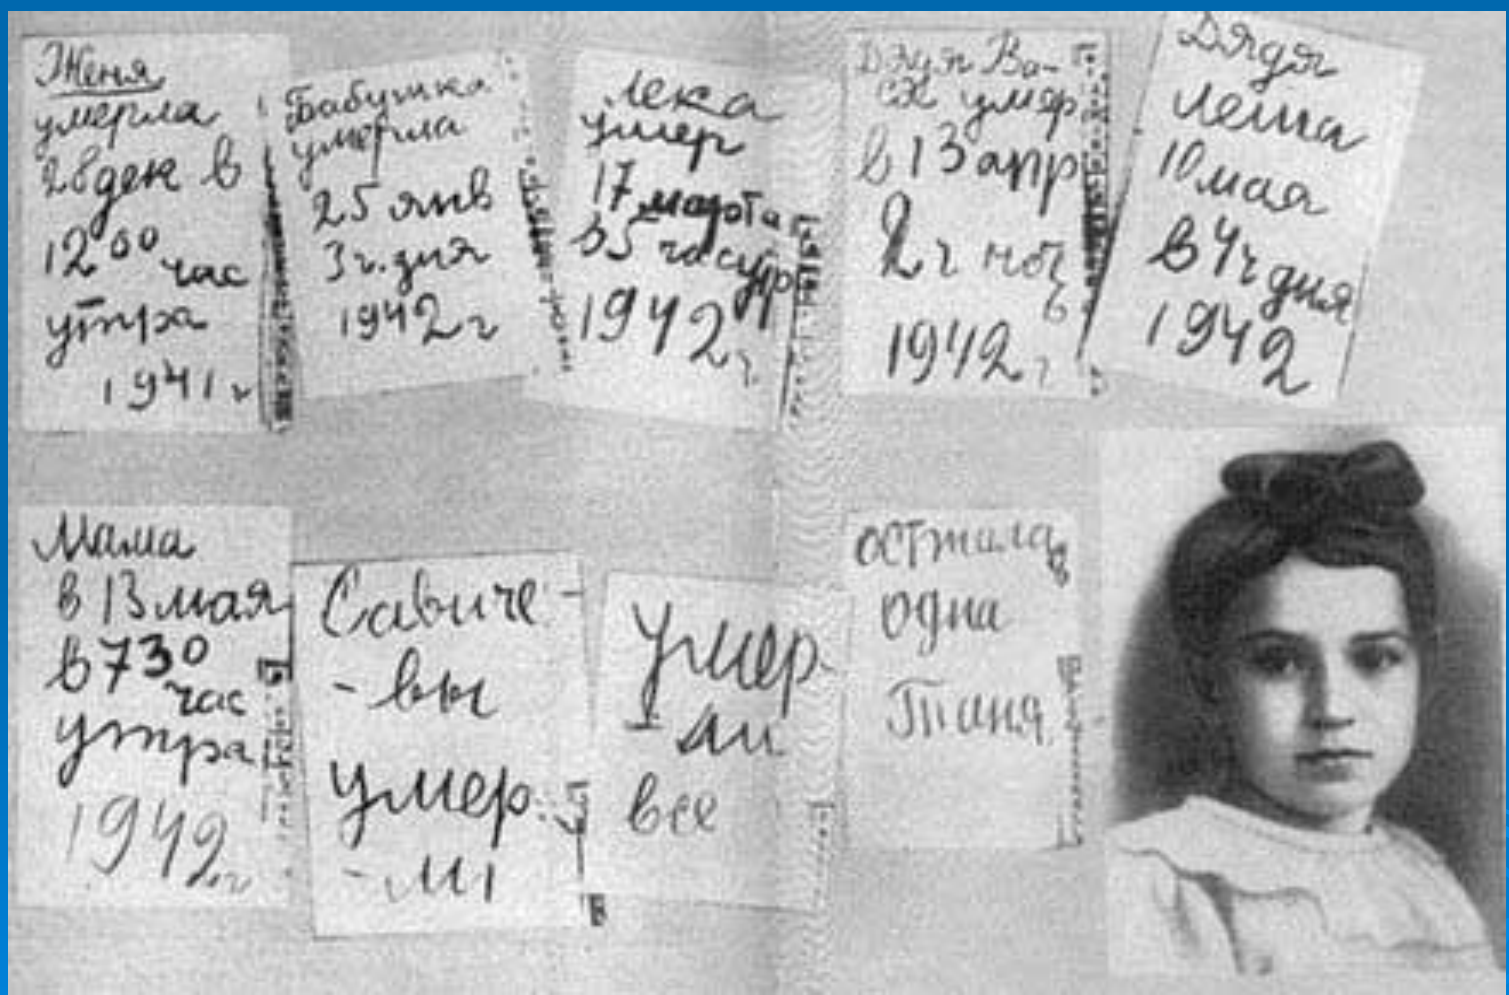 Женя
умерла
28 дек в
12 00 час
утра
1941 г
Бабушка
умерла
25 янв
3 ч. дня
1942 г
Лека
умер
17 марта
в 5 час утр
1942 г.
Дядя Ва-
ся умер
в 13 апр
2 ч ноч
1942 г
Дядя
Леша
10 мая
в 4 ч дня
1942
Мама
в 13 мая
в 7 30
час
утра
1942 г
Савиче-
-вы
умер.
-ли
Умер-
-ли
все
осталась
одна
Таня.